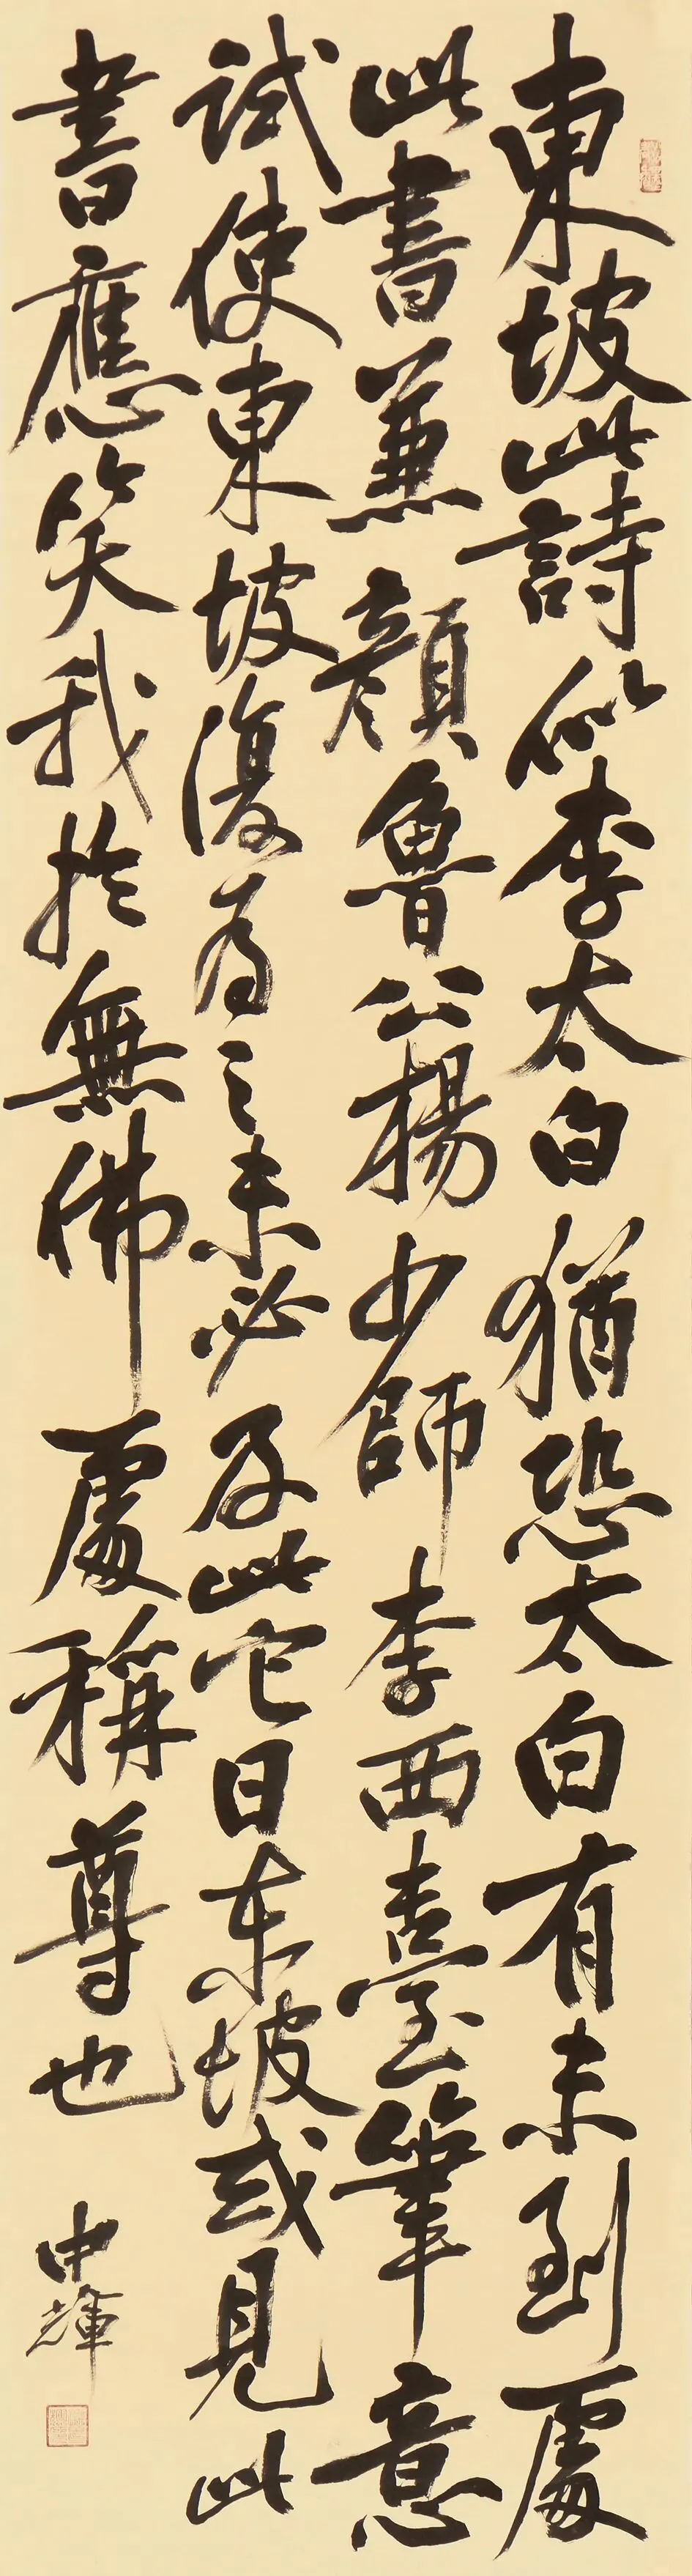 東坡此詩似李太白猶恐太白有未到處
此書兼顏魯公楊少師李西臺筆意
試使東坡復為之未必及此它日东坡或見此
書應笑我於無佛處稱尊也
中輝